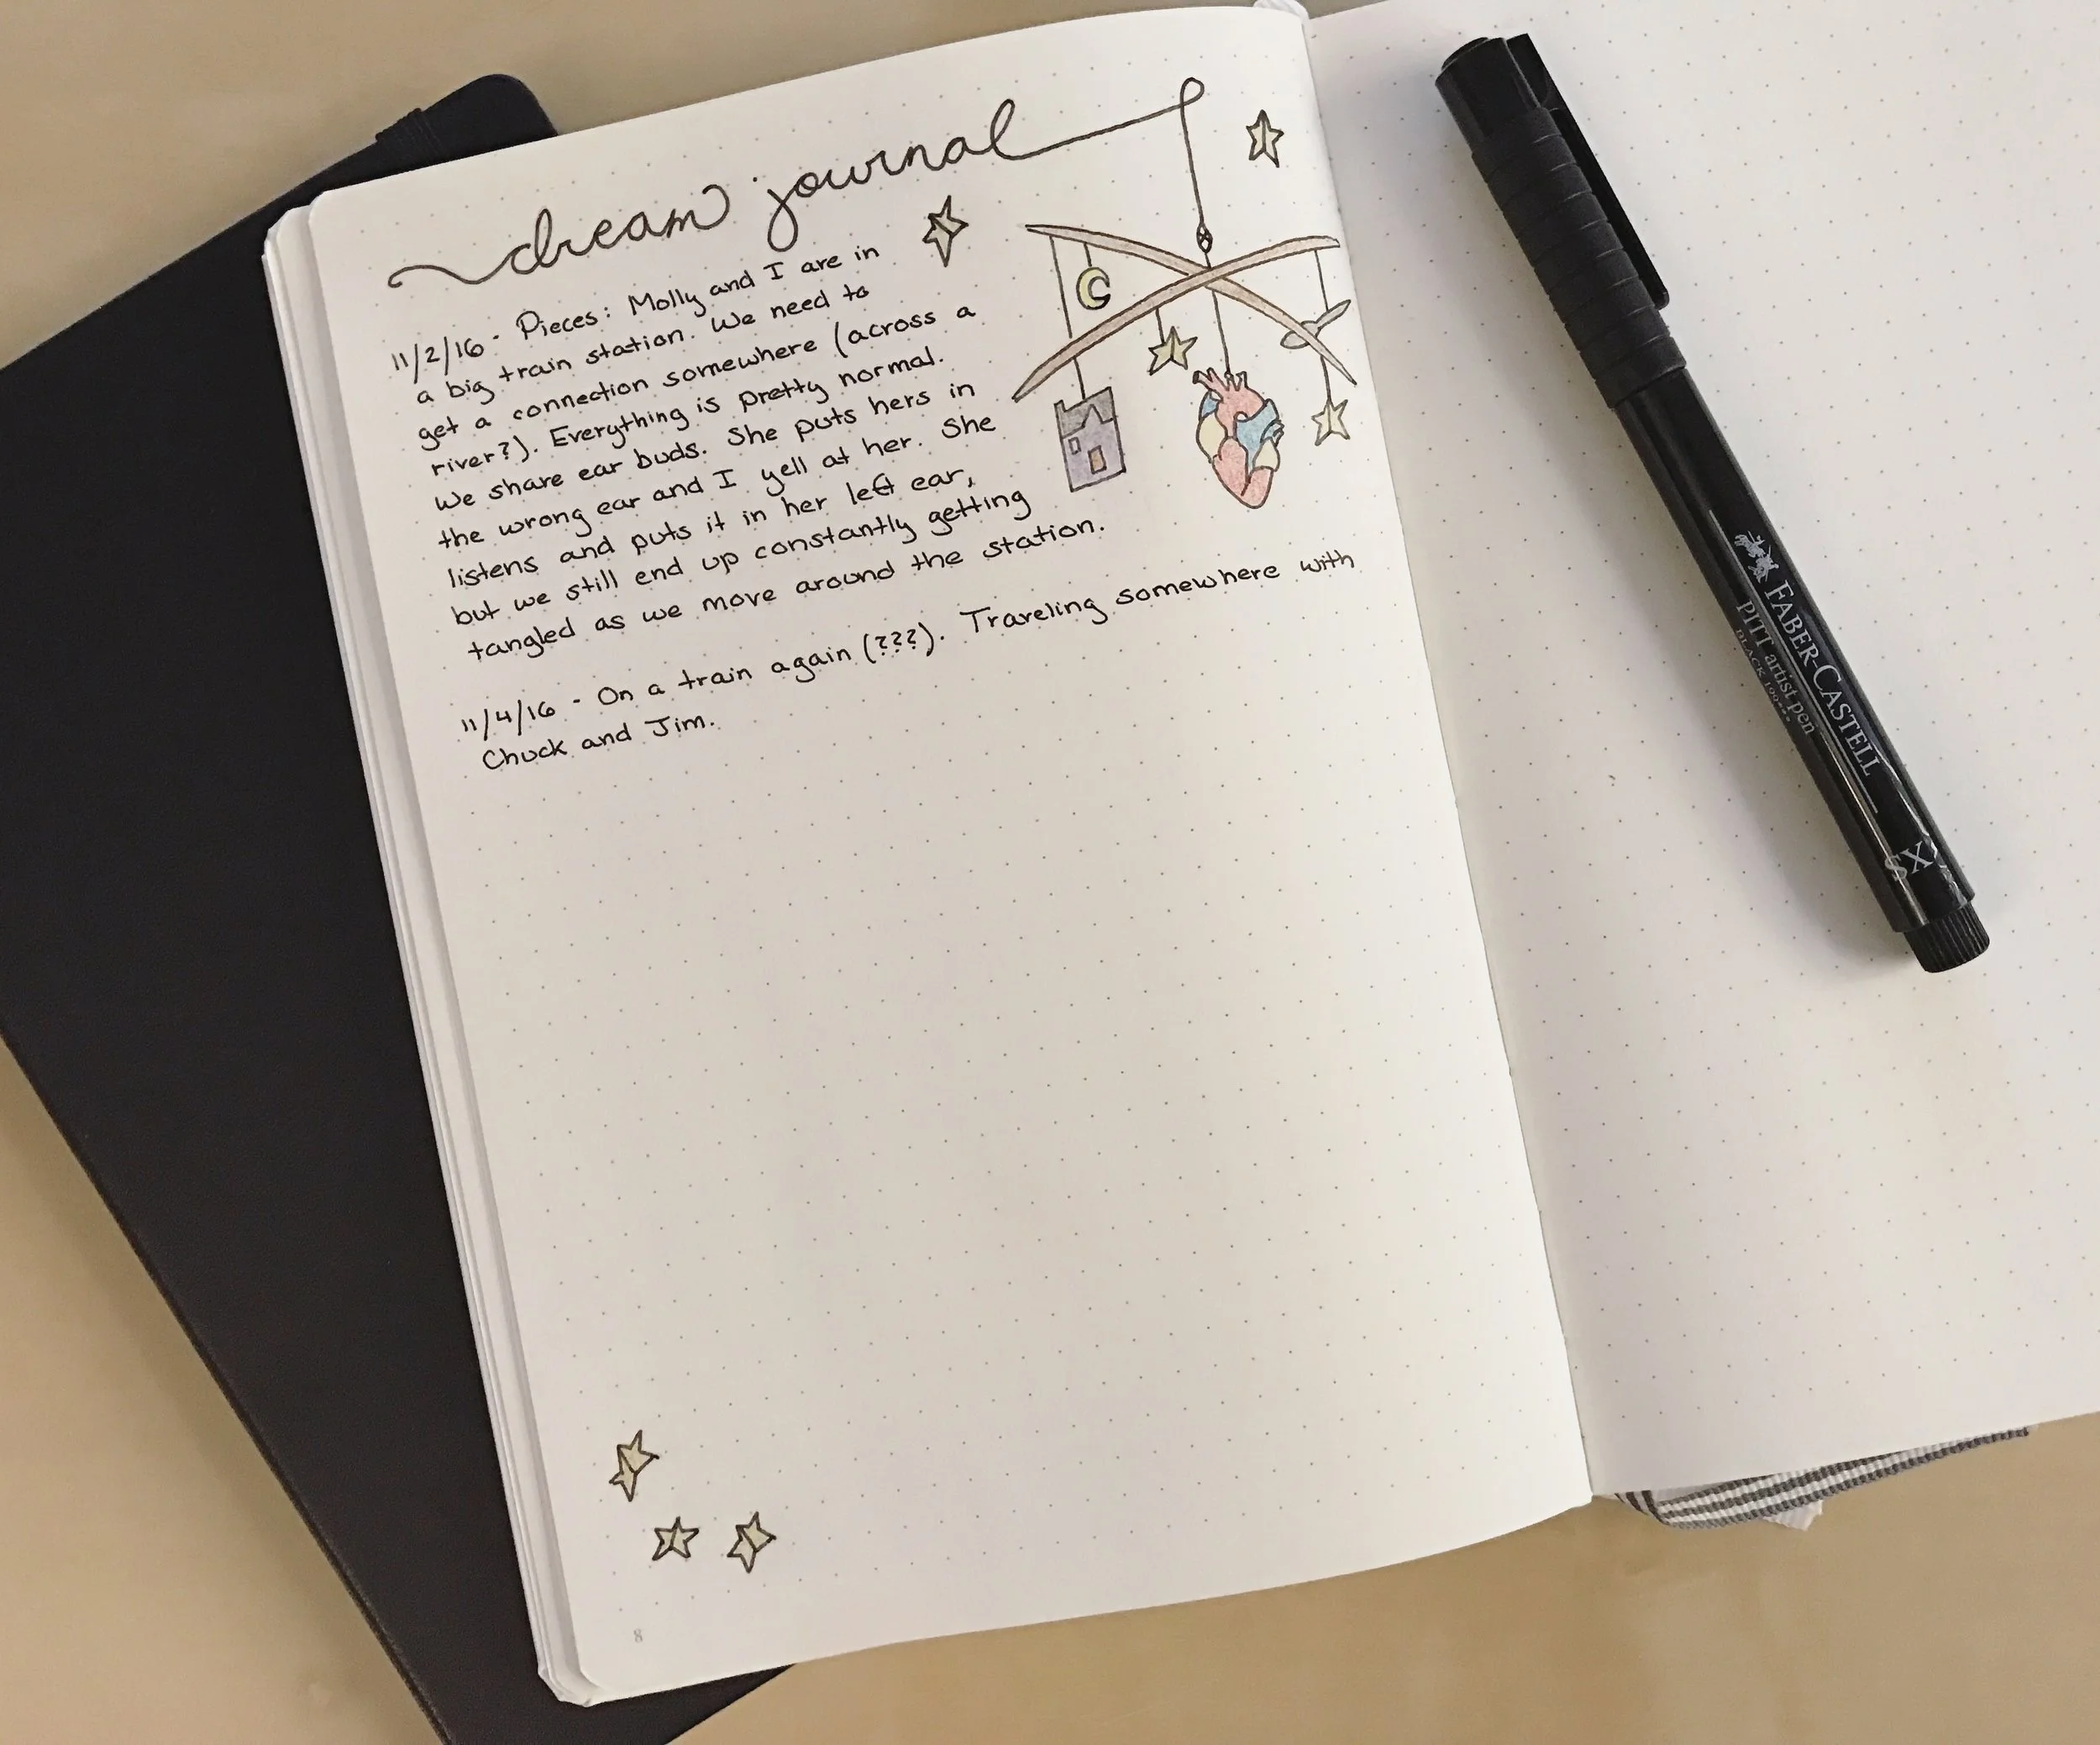 dream journal
11/2/16 - Pieces: Molly and I are in
a big train station. We need to
get a connection somewhere (across a
river?). Everything is pretty normal.
We share ear buds. She puts hers in
the wrong ear and I yell at her. She
listens and puts it in her left ear,
but we still end up constantly getting
tangled as we move around the station.
11/4/16 - On a train again (???). Traveling somewhere with
Chuck and Jim.
8
FABER-CASTELL
PITT artist pen
BLACK 199
XS